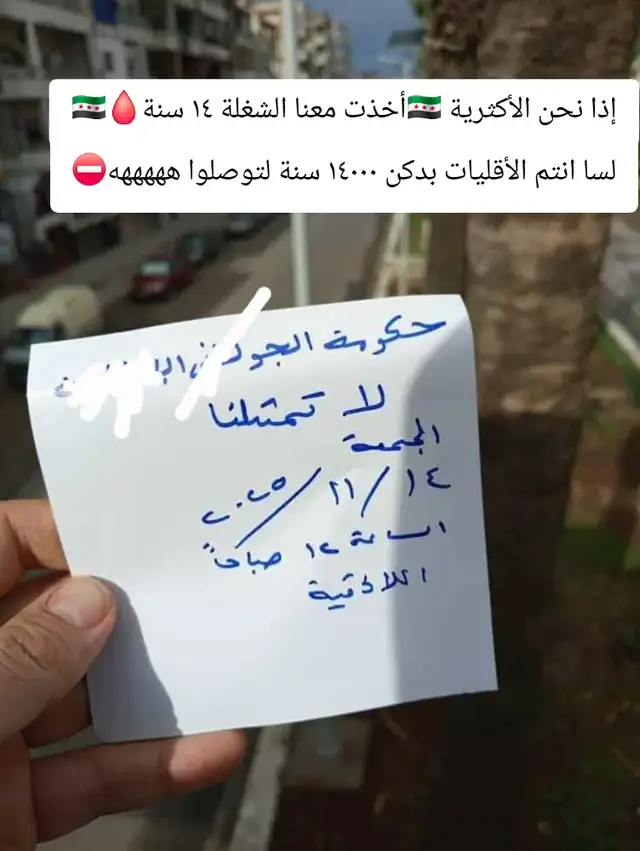 إذا نحن الأكثرية 🇸🇾أخذت معنا الشغلة ١٤ سنة🩸🇸🇾
لسا انتم الأقليات بدكن ١٤٠٠٠ سنة لتوصلوا هههههه⛔
حكومة الجولاني
لا تمثلنا
الجمعة
١٤/١١/٢٠٢٥
الساعة ١٢ صباحاً
اللاذقية